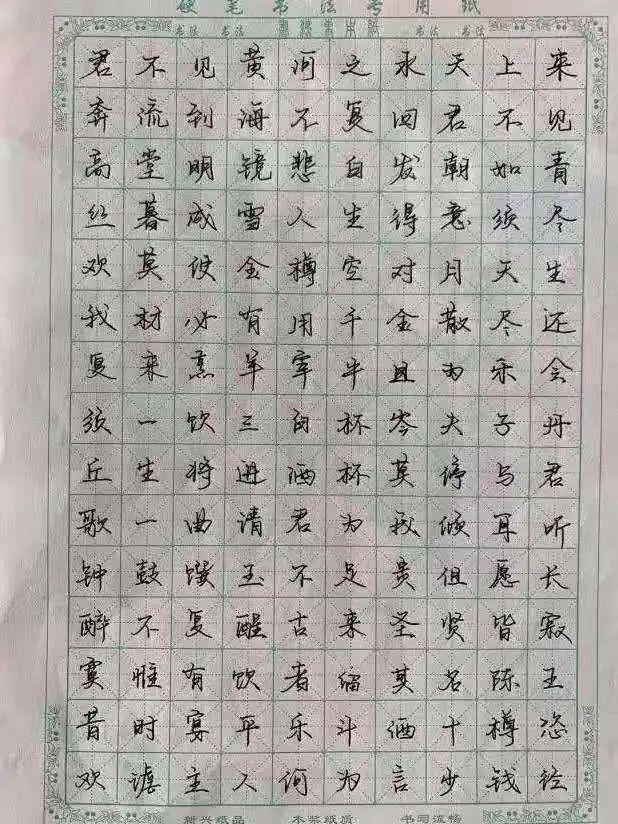 硬笔书法专用纸
书法 书法 书法 书法
君不见黄河之水天上来
奔流到海不复回君不见
高堂明镜悲白发朝如青
丝暮成雪人生得意须尽
欢莫使金樽空对月天生
我材必有用千金散尽还
复来烹羊宰牛且为乐会
须一饮三百杯岑夫子丹
丘生将进酒杯莫停与君
歌一曲请君为我倾耳听
钟鼓馔玉不足贵但愿长
醉不复醒古来圣贤皆寂
寞惟有饮者留其名陈王
昔时宴平乐斗酒十樽恣
欢谑主人何为言少钱径
新兴纸品 本浆纸质 书写流畅